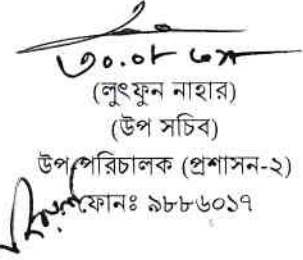 ৩০.০৮
(লুৎফুন নাহার)
(উপ সচিব)
উপ পরিচালক (প্রশাসন-২)
ফোনঃ ৯৮৮৬০১৭